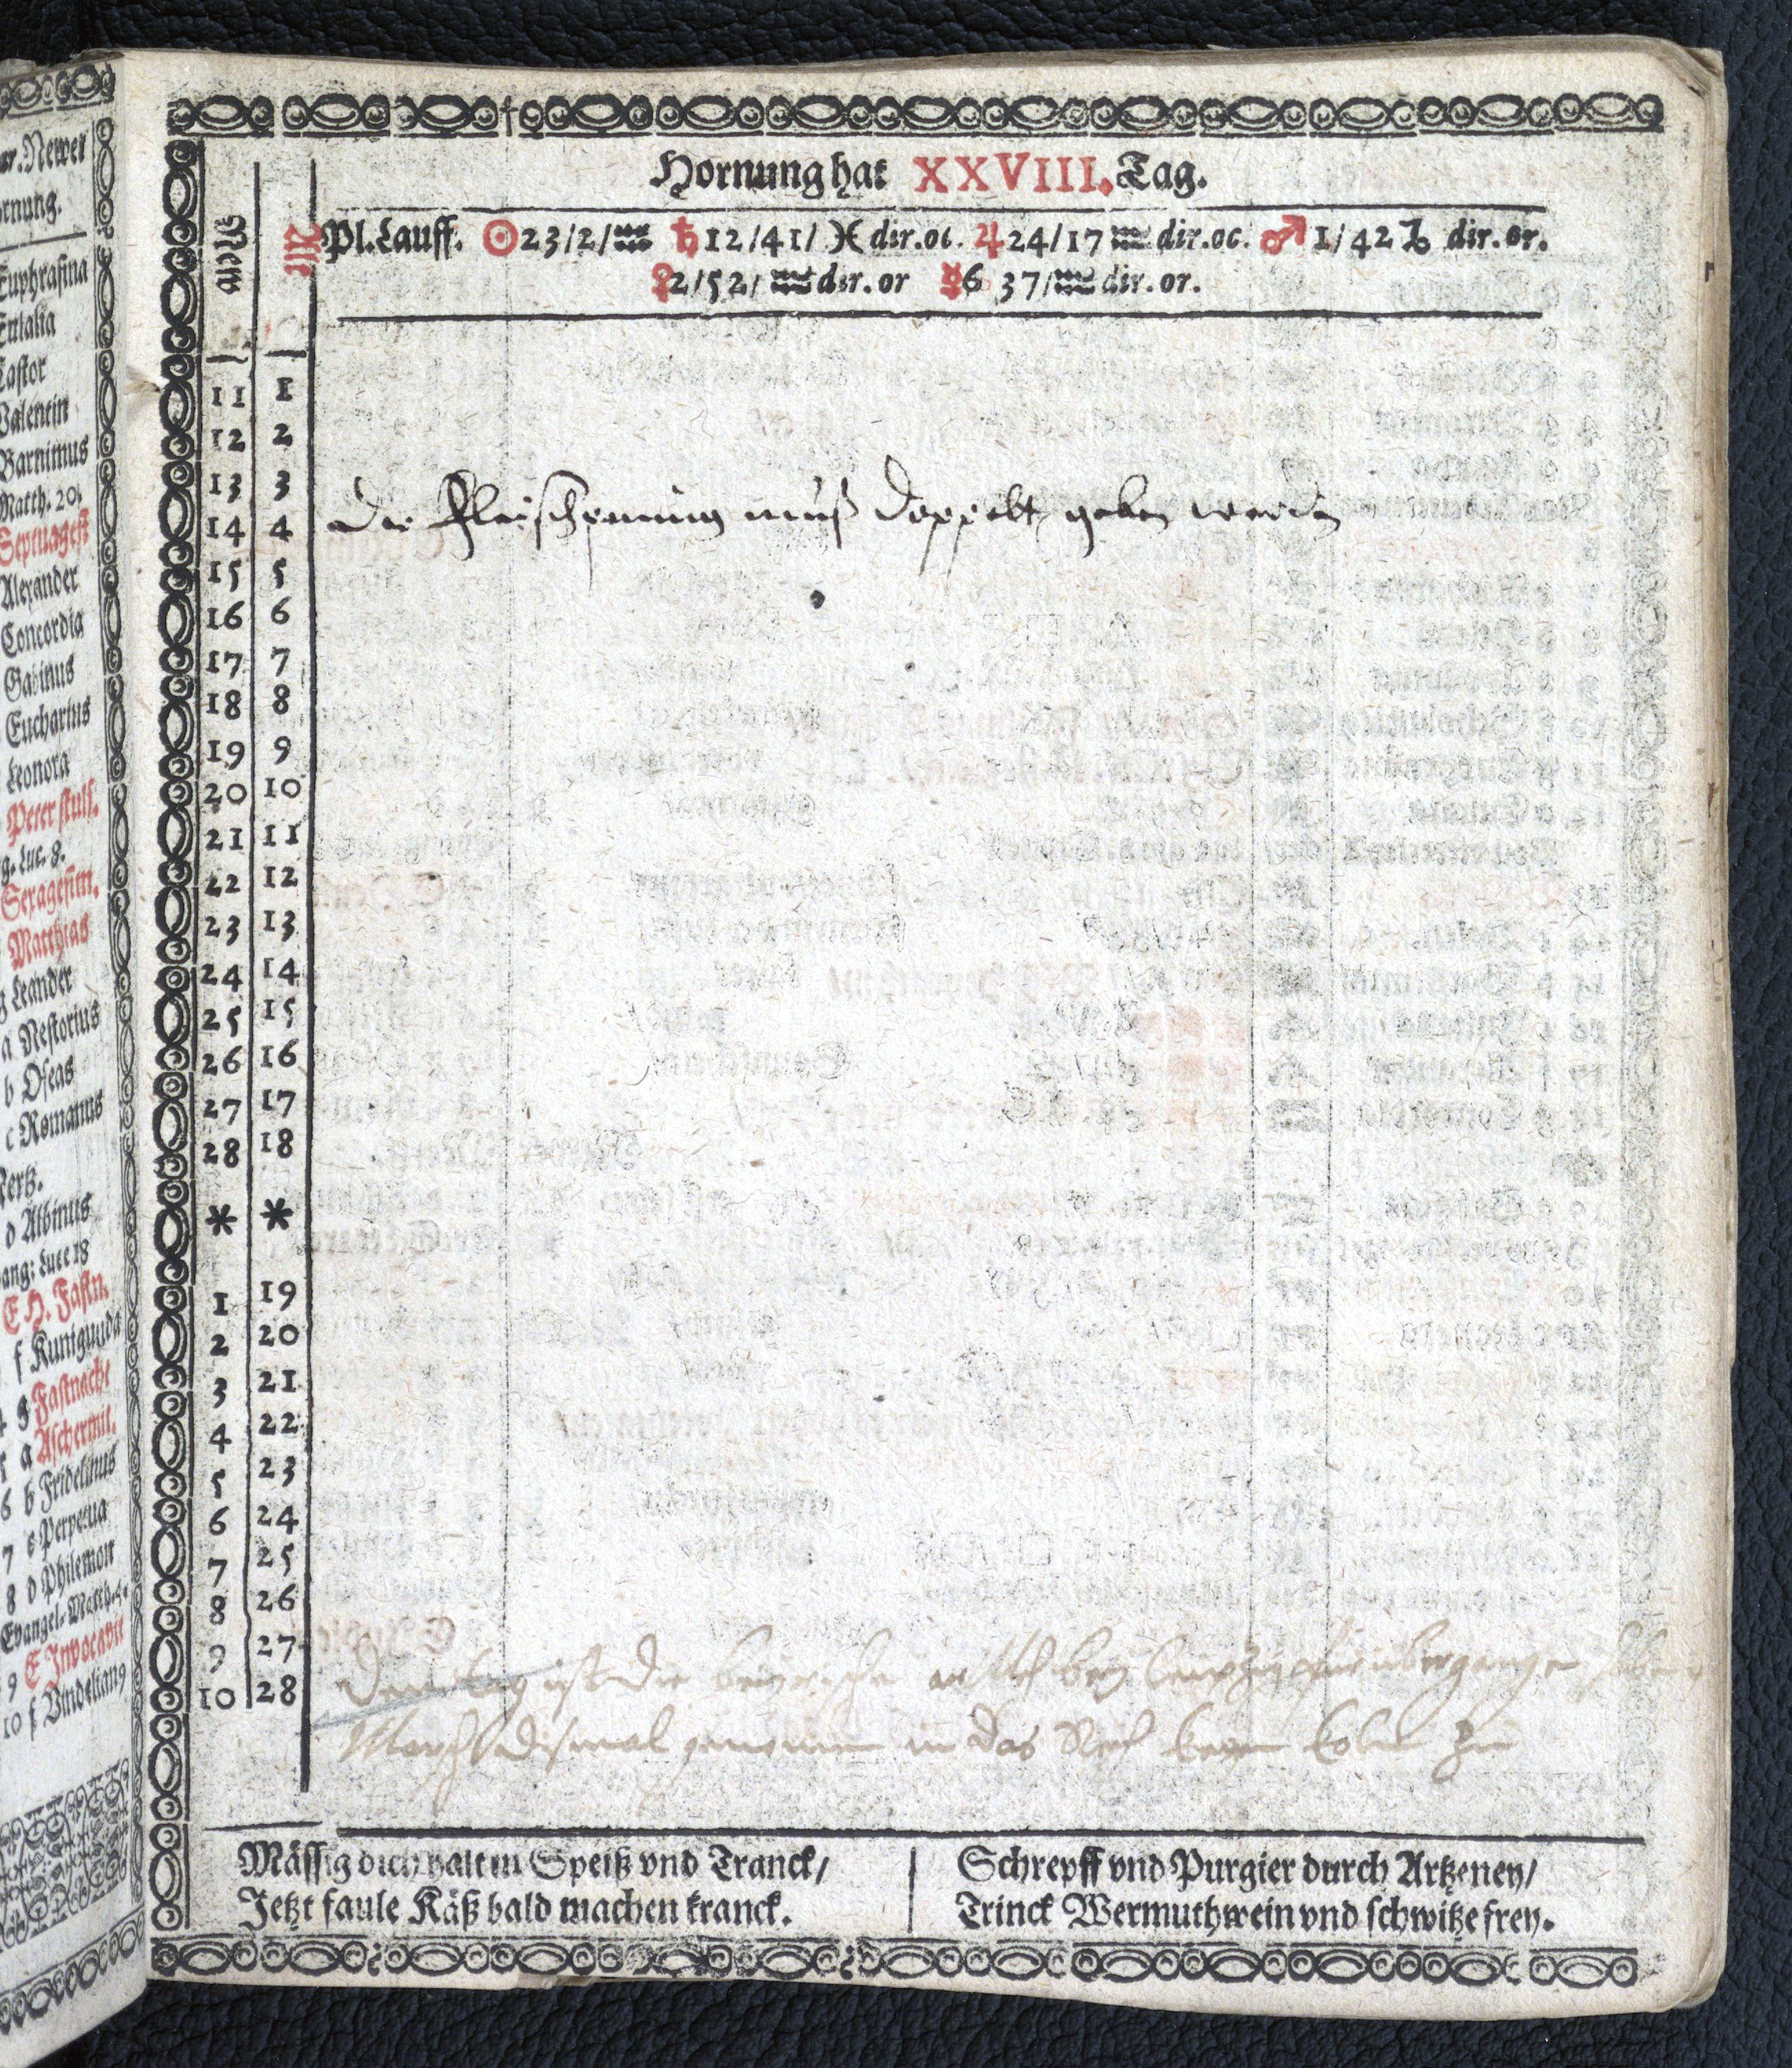 Newer
Euphrasina
Eulalia
Castor
Valentin
Barnimus
Matth. 20.
Septuagesi
Alexander
Concordia
Gabinus
Eucharius
Leonora
Peter stulf.
Luc. 8.
Sexagesim.
Matthias
Leander
a Nestorius
b Oseas
c Romanus
d Albinus
Luce 18
E H. Fastn.
f Kunigunda
g Fastnacht
a Aschermit.
6 b Fridelinus
7 c Perpetua
8 d Philemon
Evangel. Matth. 4.
9 E Invocavit
10 f
Hornung hat XXVIII. Tag.
New
Alt
Pl. Lauff. ☉ 23/2/♒ ♄ 12/41/ ♓ dir. oc. ♃ 24/17 ♒ dir. oc. ♂ 1/42 ♑ dir. or.
♀ 2/52/ ♒ dir. or ☿ 6 37/♒ dir. or.
11 1
12 2
13 3
14 4 Der Fleischpenning muß doppelt geben werden
15 5
16 6
17 7
18 8
19 9
20 10
21 11
22 12
23 13
24 14
25 15
26 16
27 17
28 18
* *
1 19
2 20
3 21
4 22
5 23
6 24
7 25
8 26
9 27
10 28 Den tag ist die beyerische bey Leipzig fürubergangen
Marsch dismal genomen in das
Mässig dich halt in Speiß vnd Tranck/
Jetzt faule Käß bald machen kranck.
Schrepff vnd Purgier durch Artzeney/
Trinck Wermuthwein vnd schwitze frey.